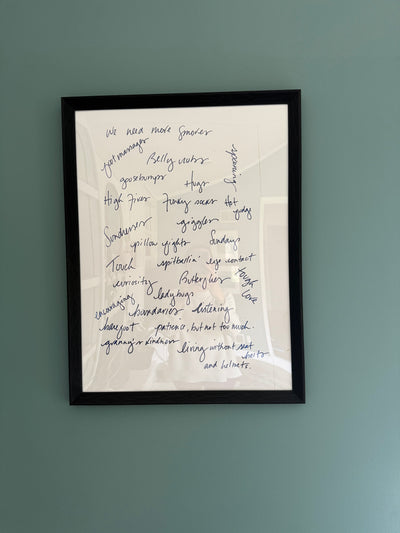 We need more Smores
foot massages
Belly rubs
spooning
goosebumps
Hugs
High Fives
Funny socks
Hot fudge
Sundresses
giggles
pillow fights
Sundays
Touch
spitballin'
eye contact
curiosity
Butterflies
tough love
encouraging
ladybugs
boundaries
listening
barefoot
patience, but not too much.
granny's kindness
living without seat belts
and helmets.